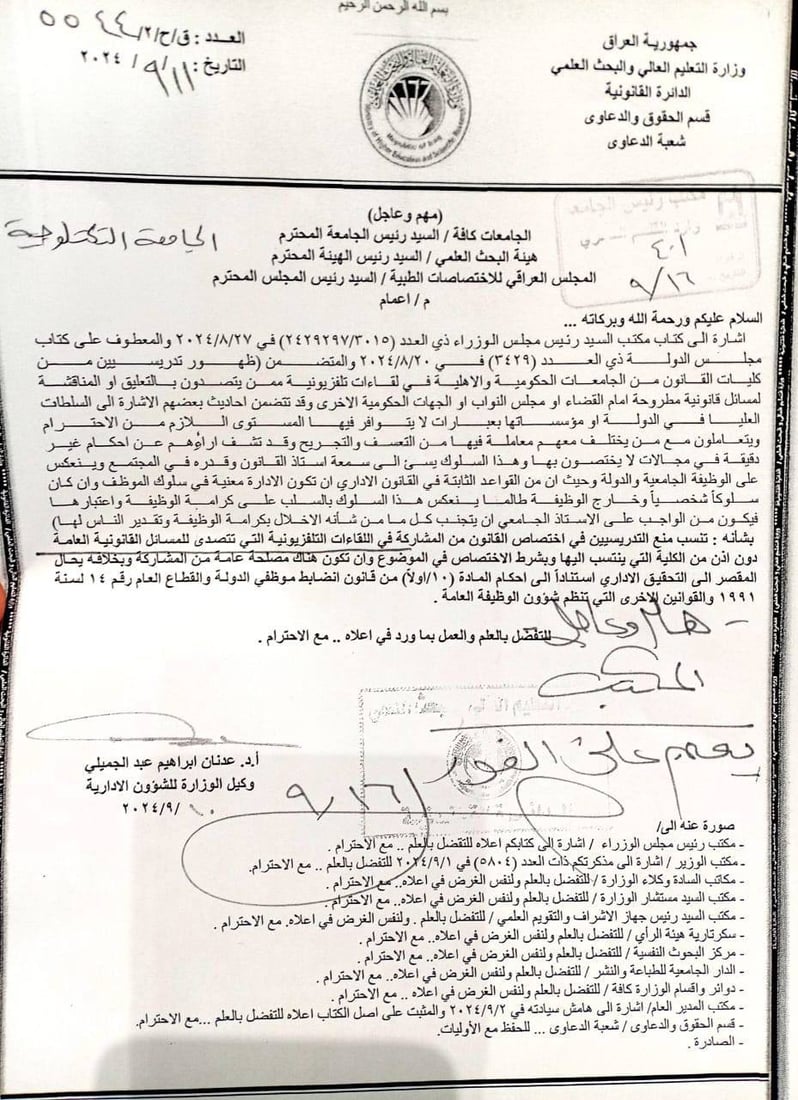 بسم الله الرحمن الرحيم
جمهورية العراق
وزارة التعليم العالي والبحث العلمي
الدائرة القانونية
قسم الحقوق والدعاوى
شعبة الدعاوى
العدد : ق/ح/٢/ ٥٥٤٤
التاريخ : ٩/١١/ ٢٠٢٤
Ministry of Higher Education and Scientific Research
Republic of Iraq
مكتب رئيس الجامعة
٤٠١
٩/١٦
(مهم وعاجل)
الجامعات كافة / السيد رئيس الجامعة المحترم
الجامعة التكنلوجية
هيئة البحث العلمي / السيد رئيس الهيئة المحترم
المجلس العراقي للاختصاصات الطبية / السيد رئيس المجلس المحترم
م / اعمام
السلام عليكم ورحمة الله وبركاته ...
اشارة الى كتاب مكتب السيد رئيس مجلس الوزراء ذي العدد (٢٤٢٩٢٩٧/٣٠١٥) في ٢٠٢٤/٨/٢٧ والمعطوف على كتاب
مجلس الدولة ذي العدد (٣٤٢٩) في ٢٠٢٤/٨/٢٠ والمتضمن (ظهور تدريسيين من
كليات القانون من الجامعات الحكومية والاهلية في لقاءات تلفزيونية ممن يتصدون بالتعليق او المناقشة
لمسائل قانونية مطروحة امام القضاء او مجلس النواب او الجهات الحكومية الاخرى وقد تتضمن احاديث بعضهم الاشارة الى السلطات
العليا في الدولة او مؤسساتها بعبارات لا يتوافر فيها المستوى اللازم من الاحترام
ويتعاملون مع من يختلف معهم معاملة فيها من التعسف والتجريح وقد تشف اراؤهم عن احكام غير
دقيقة في مجالات لا يختصون بها وهذا السلوك يسئ الى سمعة استاذ القانون وقدره في المجتمع وينعكس
على الوظيفة الجامعية والدولة وحيث ان من القواعد الثابتة في القانون الاداري ان تكون الادارة معنية في سلوك الموظف وان كان
سلوكاً شخصياً وخارج الوظيفة طالما ينعكس هذا السلوك بالسلب على كرامة الوظيفة واعتبارها
فيكون من الواجب على الاستاذ الجامعي ان يتجنب كل ما من شأنه الاخلال بكرامة الوظيفة وتقدير الناس لها)
بشأنه : تنسب منع التدريسيين في اختصاص القانون من المشاركة في اللقاءات التلفزيونية التي تتصدى للمسائل القانونية العامة
دون اذن من الكلية التي ينتسب اليها وبشرط الاختصاص في الموضوع وان تكون هناك مصلحة عامة من المشاركة وبخلافه يحال
المقصر الى التحقيق الاداري استناداً الى احكام المادة (١٠/اولاً) من قانون انضباط موظفي الدولة والقطاع العام رقم ١٤ لسنة
١٩٩١ والقوانين الاخرى التي تنظم شؤون الوظيفة العامة .
- هام وعاجل
للتفضل بالعلم والعمل بما ورد في اعلاه .. مع الاحترام .
المكتب
يعمم على الفور
٩/١٦
أ.د. عدنان ابراهيم عبد الجميلي
وكيل الوزارة للشؤون الادارية
٢٠٢٤/٩/ ١٠
صورة عنه الى/
- مكتب رئيس مجلس الوزراء / اشارة الى كتابكم اعلاه للتفضل بالعلم .. مع الاحترام .
- مكتب الوزير / اشارة الى مذكرتكم ذات العدد (٥٨٠٤) في ٢٠٢٤/٩/١ للتفضل بالعلم .. مع الاحترام.
- مكاتب السادة وكلاء الوزارة / للتفضل بالعلم ولنفس الغرض في اعلاه.. مع الاحترام .
- مكتب السيد مستشار الوزارة / للتفضل بالعلم ولنفس الغرض في اعلاه.. مع الاحترام .
- مكتب السيد رئيس جهاز الاشراف والتقويم العلمي / للتفضل بالعلم . ولنفس الغرض في اعلاه. مع الاحترام .
- سكرتارية هيئة الرأي / للتفضل بالعلم ولنفس الغرض في اعلاه.. مع الاحترام .
- مركز البحوث النفسية / للتفضل بالعلم ولنفس الغرض في اعلاه.. مع الاحترام .
- الدار الجامعية للطباعة والنشر / للتفضل بالعلم ولنفس الغرض في اعلاه.. مع الاحترام .
- دوائر واقسام الوزارة كافة / للتفضل بالعلم ولنفس الغرض في اعلاه .. مع الاحترام .
- مكتب المدير العام/ اشارة الى هامش سيادته في ٢٠٢٤/٩/٢ والمثبت على اصل الكتاب اعلاه للتفضل بالعلم ...مع الاحترام.
- قسم الحقوق والدعاوى / شعبة الدعاوى ... للحفظ مع الأوليات.
- الصادرة .